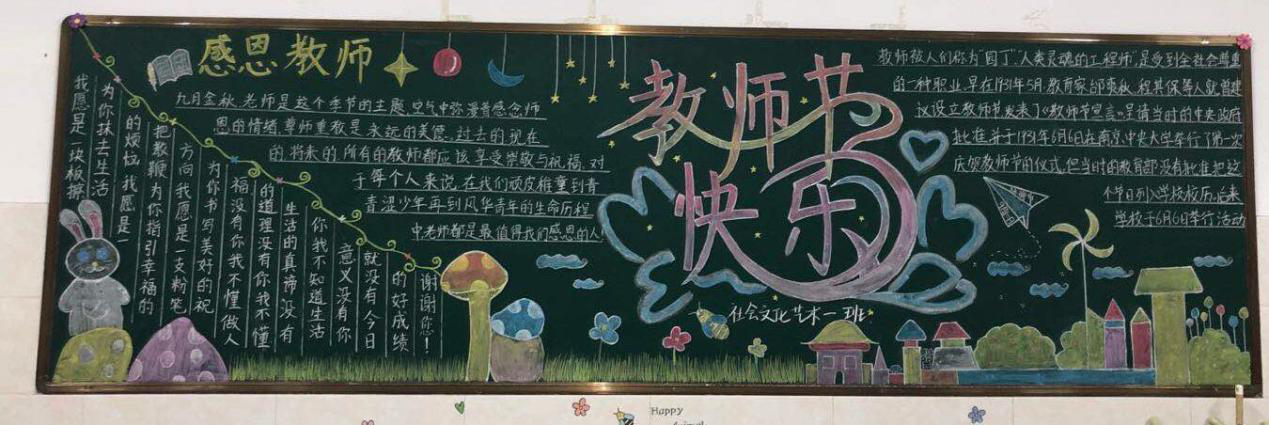 感恩教师
九月金秋,老师是这个季节的主题,空气中弥漫着感念师
恩的情绪,尊师重教是永远的美德。过去的现在
的将来的所有的教师都应该享受崇敬与祝福,对
于每个人来说,在我们顽皮稚童到青
青涩少年再到风华青年的生命历程
中老师都是最值得我们感恩的人
我愿是一块板擦
为你抹去生活
的烦恼,我愿是一
把教鞭为你指引幸福的
方向我愿是一支粉笔
为你书写美好的祝
福没有你我不懂做人
的道理没有你我不懂
生活的真谛没有
你我不知道生活
意义没有你
就没有今日
的好成绩
谢谢您!
教师节
快乐
社会文化艺术一班
教师被人们称为“园丁”,“人类灵魂的工程师”,是受到全社会尊重
的一种职业,早在1931年5月,教育家邰爽秋、程其保等人就曾建
议设立教师节,发表了《教师节宣言》,呈请当时的中央政府
批准,并于1931年6月6日在南京中央大学举行了第一次
庆贺教师节的仪式,但当时的教育部没有批准把这
个节日列入学校校历,后来
学校于6月6日举行活动
Happy